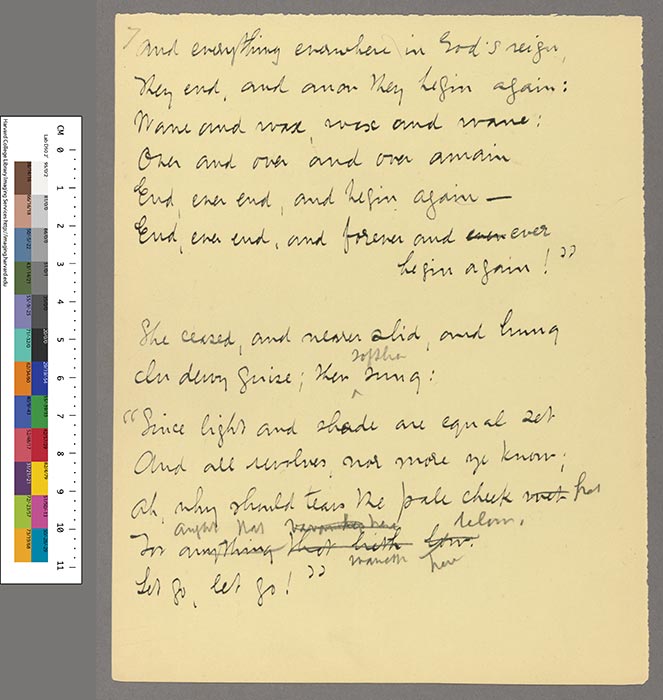 And everything everwhere in God's reign,
They end, and anon they begin again:
Wane and wax, wax and wane:
Over and over and over amain
End, ever end, and begin again —
End, ever end, and forever and even ever
begin again!"
She ceased, and nearer slid, and hung
softlier
In dewy guise; then sung:
"Since light and shade are equal set
And all revolves, nor more ye know;
Ah, why should tears the pale cheek wet fret
aught that here below.
For anything that lieth low.
waneth here
Let go, let go!"
CM 0 1 2 3 4 5 6 7 8 9 10 11
Harvard College Library Imaging Services http://imaging.harvard.edu